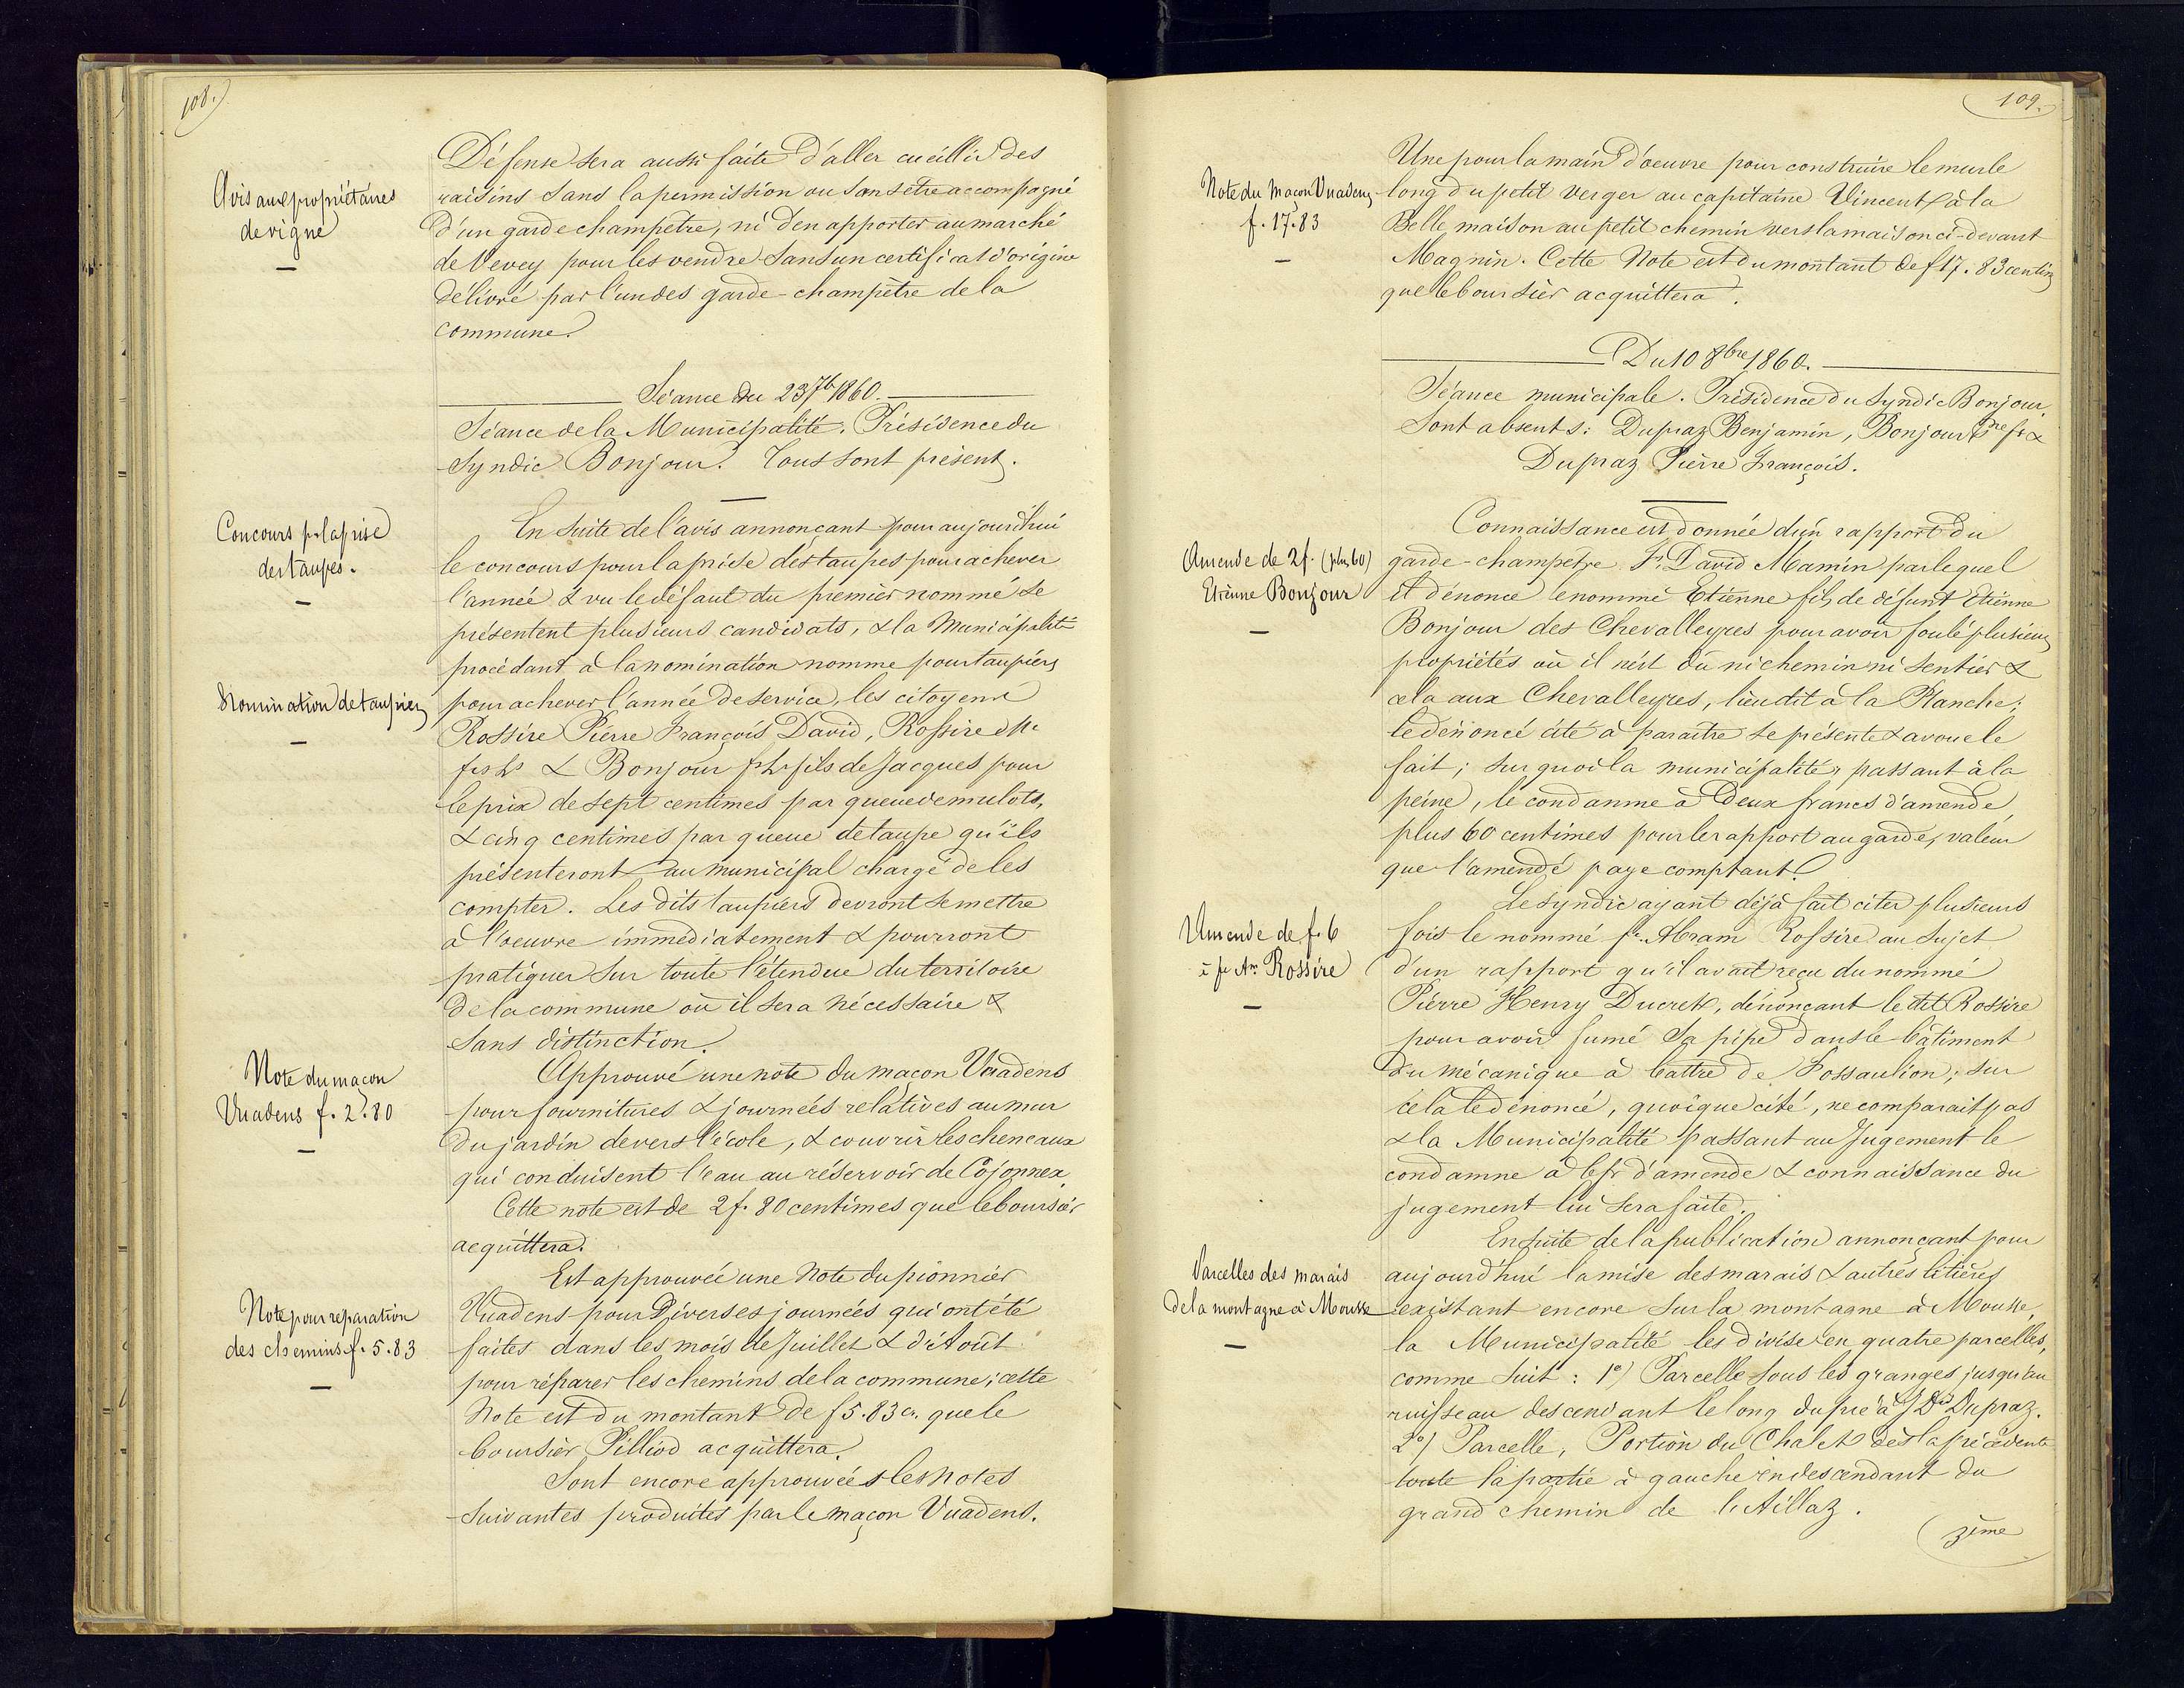 108.
Avis aux propriétaires
de vigne
Défense sera aussi faite d'aller cueillir des
raisins sans la permission ou sans être accompagné
d'un garde champêtre, ni d'en apporter au marché
de Vevey pour les vendre sans un certificat d'origine
délivré par l'un des garde-champêtre de la
commune.
Séance du 23 7b 1860.
Séance de la Municipalité. Présidence du
Syndic Bonjour. Tous sont présents.
Concours pr la prise
des taupes.
En suite de l'avis annonçant pour aujourd'hui
le concours pour la prise des taupes pour achever
l'année & vu le défaut du premier nommé se
présentent plusieurs candidats, & la Municipalité
procédant à la nomination nomme pour taupiers
Nomination de taupiers
pour achever l'année de service, les citoyens
Rossire Pierre François David, Rossire
& Bonjour fils de Jacques pour
le prix de sept centimes par queue de mulots,
& cinq centimes par queue de taupe qu'ils
présenteront au municipal chargé de les
compter. Les dits taupiers devront se mettre
à l'oeuvre immédiatement & pourront
pratiquer sur toute l'étendue du territoire
de la commune où il sera nécessaire &
sans distinction.
Note du maçon
Vuadens f. 2.80
Approuvé une note du maçon Vuadens
pour fournitures & journées relatives au mur
du jardin devers l'école, & couvrir les cheneaux
qui conduisent l'eau au réservoir de Cojonnex
Cette note est de 2 f. 80 centimes que le boursier
acquittera.
Est approuvée une Note du pionnier
Note pour réparation
des chemins f. 5.83
Vuadens pour Diverses journées qui ont été
faites dans les mois de Juillet & d'Août
pour réparer les chemins de la commune; cette
Note est du montant de f 5.83 c. que le
boursier Pilliod acquittera.
Sont encore approuvées les notes
suivantes produites par le maçon Vuadens.
109.
Note du maçon Vuadens
f. 17.83
Une pour la main d'oeuvre pour construire le mur le
long du petit verger au capitaine Vincent à la
Belle maison au petit chemin vers la maison ci-devant
Magnin. Cette Note est du montant de f 17. 83 centim
que le boursier acquittera.
Du 10 8bre 1860.
Séance municipale. Présidence du Syndic Bonjour.
Sont absents: Dupraz Benjamin, Bonjour &
Dupraz Pierre François.
Amende de 2 f. (plus 60)
Etienne Bonjour
Connaissance est donnée d'un rapport du
garde-champêtre F. David Mamin par lequel
il dénonce le nommé Etienne fils de défunt Etienne
Bonjour des Chevalleyres pour avoir foulé plusieurs
propriétés où il n'est dû ni chemin ni sentier &
cela aux Chevalleyres, lieu dit à la Planche;
le dénoncé cité à paraître se présente & avoue le
fait; sur quoi la municipalité, passant à la
peine, le condamne à deux francs d'amende
plus 60 centimes pour le rapport au garde, valeur
que l'amendé paye comptant.
Amende de f. 6
à fs Am Rossire
Le syndic ayant déjà fait citer plusieurs
fois le nommé fs. Abram Rossire au sujet
d'un rapport qu'il avait reçu du nommé
Pierre Henry Ducret, dénonçant le dit Rossire
pour avoir fumé sa pipe dans le bâtiment
du mécanique à battre de Fossaulion; sur
cela le dénoncé, quoique cité, ne comparait pas
& la Municipalité passant au Jugement le
condamne à 6 fr d'amende & connaissance du
jugement lui sera faite.
Parcelles des marais
de la montagne à Mousse
Ensuite de la publication annonçant pour
aujourd'hui la mise des marais & autres litières
existant encore sur la montagne à Mousse,
la Municipalité les divise en quatre parcelles,
comme suit: 1o) Parcelle sous les granges jusqu'au
ruisseau descendant le long du pré à Dupraz.
2o) Parcelle, Portion du Chalet dès la précédente
toute la partie à gauche en descendant du
grand chemin de l'Aillaz.
3ème